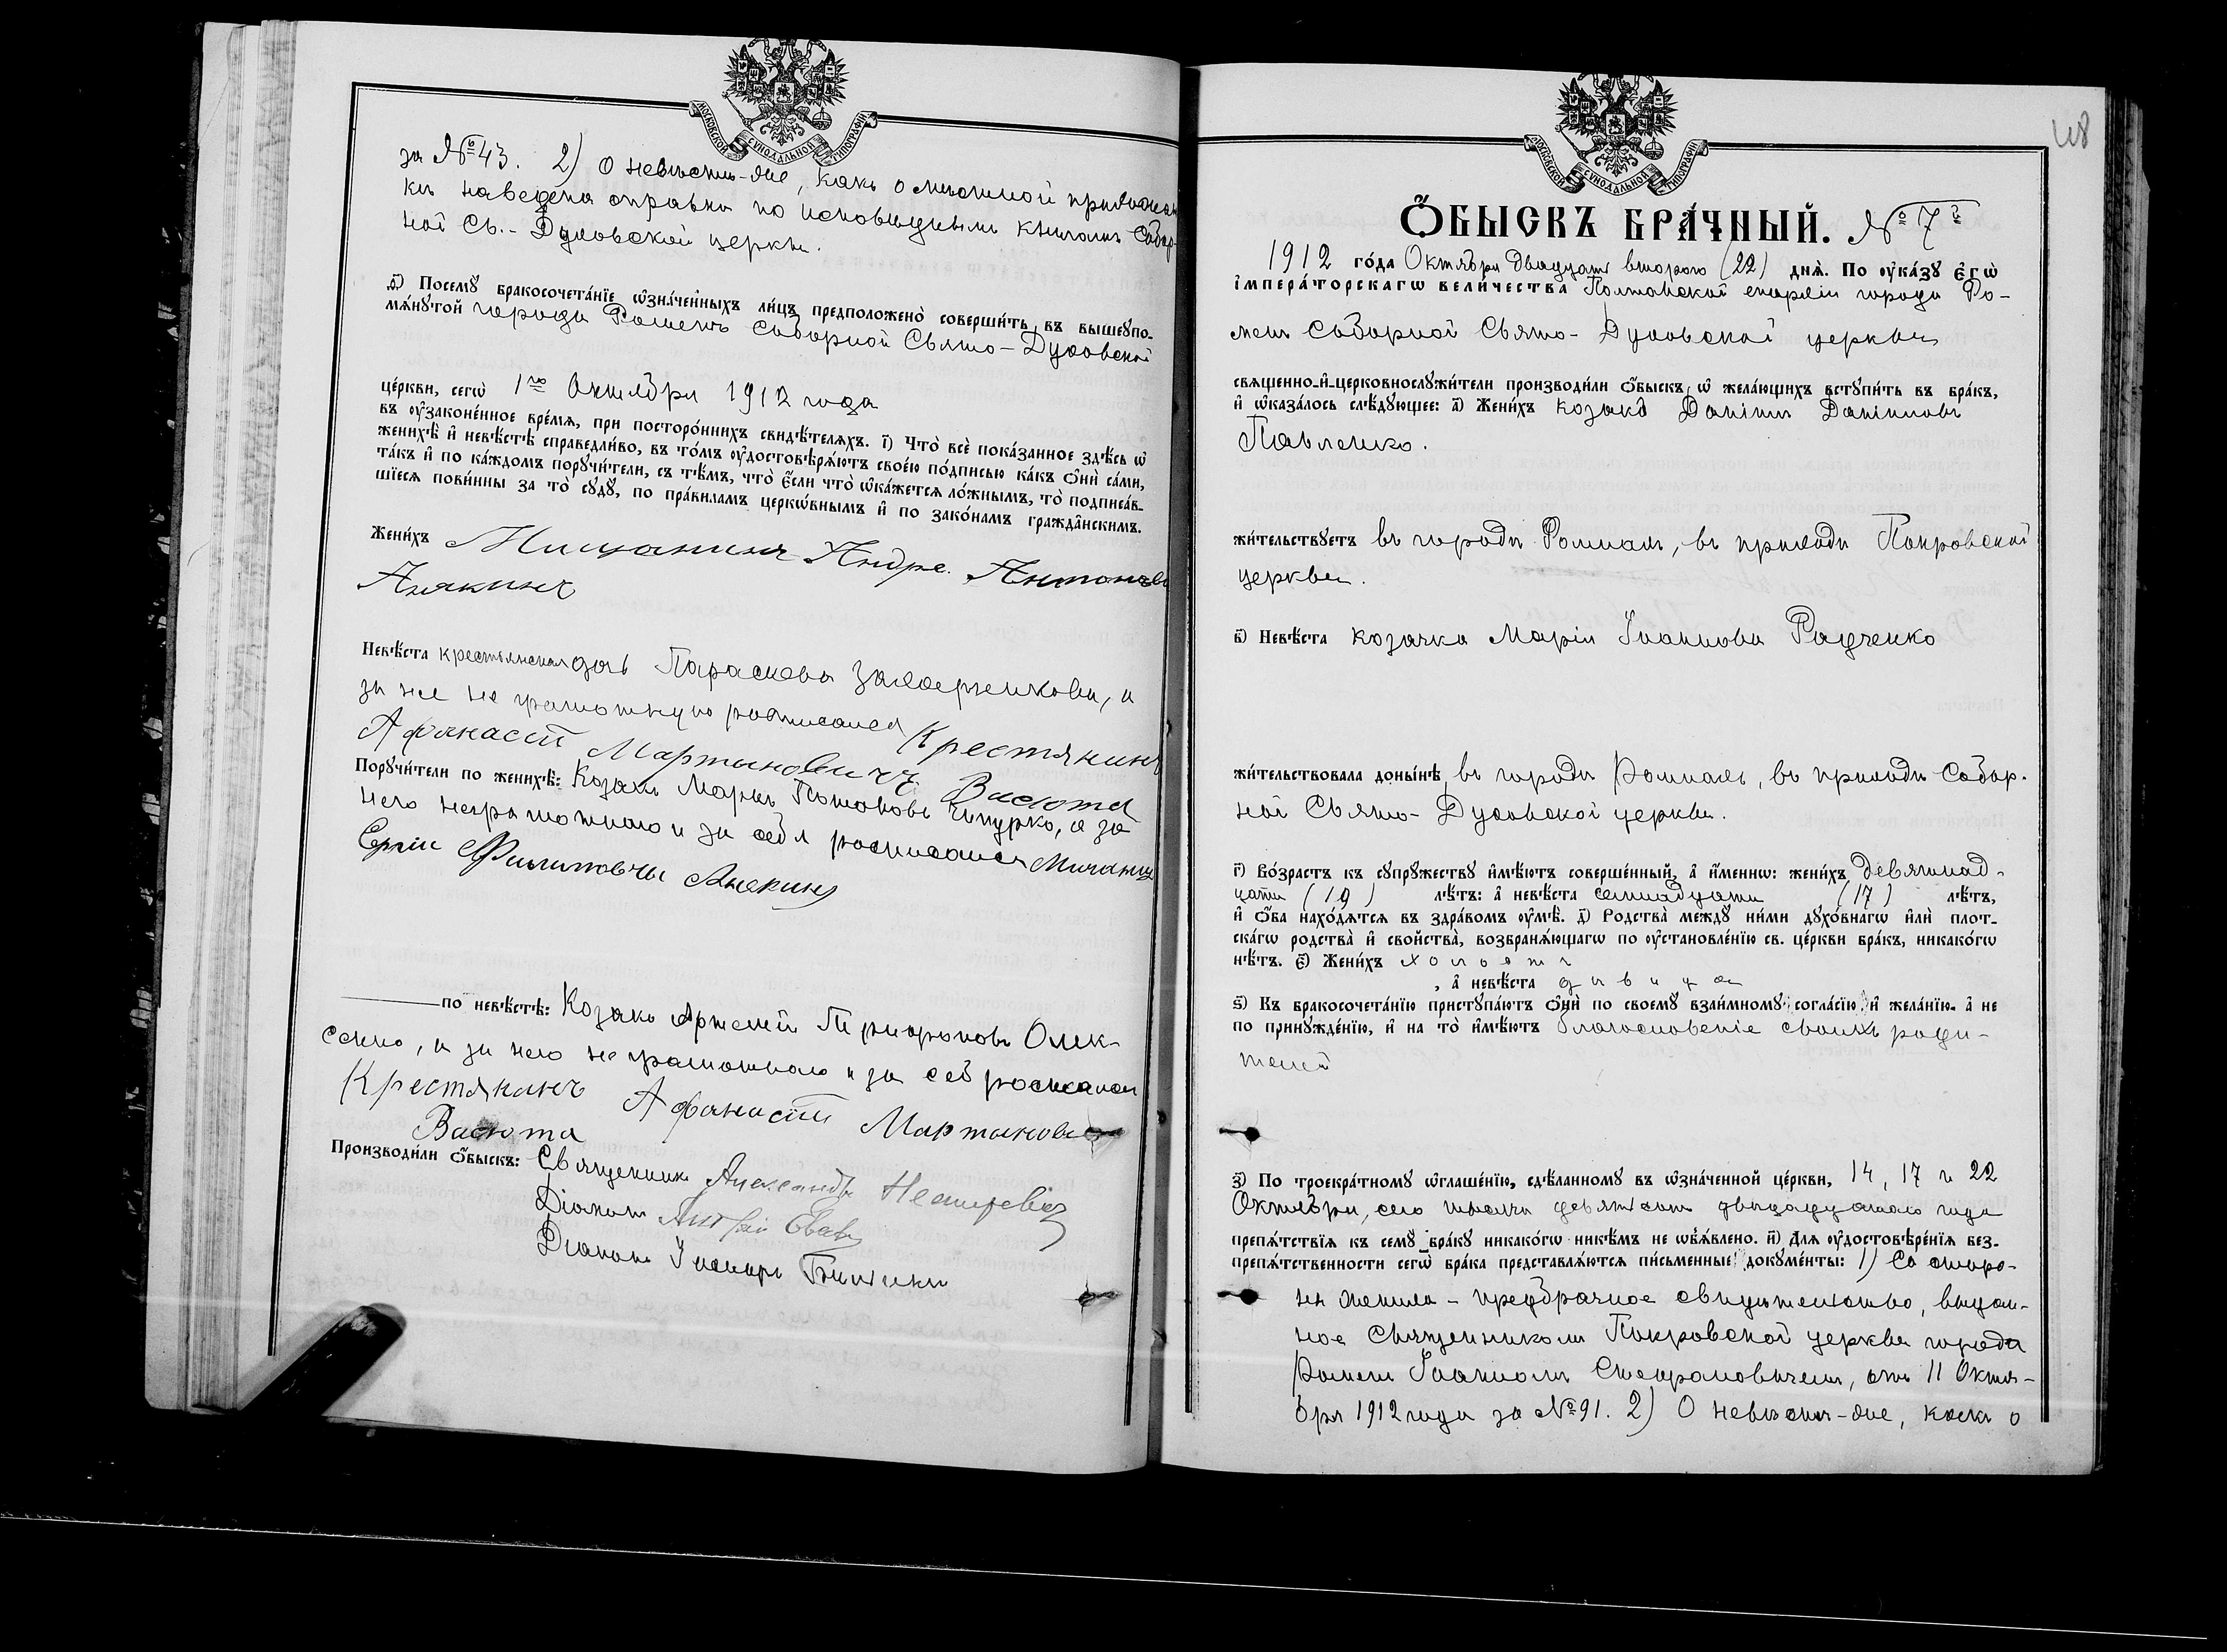 МОСКОВСКОЙ СѴНОДАЛЬНОЙ ТИПОГРАФІИ
за № 43. 2) О невѣстѣ-же, какъ о мѣстной прихожан
кѣ наведена справка по исповѣднымъ книгамъ Собор-
ной Св.-Духовской церкви.
д҃і) Посемꙋ бракосочета́нїе ѡ҆зна́ченныхъ ли́цъ предположено̀ соверши́ть въ вышеꙋпо-
мѧ́нꙋтой города Роменъ Соборной Свято-Духовской
це́ркви, сегѡ̀ 1го Октября 1912 года
въ ᲂу҆зако́ненное вре́мѧ, при посторо́ннихъ свидѣ́телѧхъ. і҃) Что̀ всѐ пока́занное здѣ́сь ѡ҆
женихѣ̀ и҆ невѣ́стѣ справедли́во, въ то́мъ ᲂу҆достовѣрѧ́ютъ свое́ю по́дписью ка́къ ѻ҆нѝ са́ми,
та́къ и҆ по ка́ждомъ порꙋчи́тели, съ тѣ́мъ, что̀ є҆́сли что̀ ѡ҆ка́жетсѧ ло́жнымъ, то̀ подписа́в-
шїесѧ пови́нны за то̀ сꙋдꙋ̀, по пра́виламъ церко́внымъ и҆ по зако́намъ гражда́нскимъ.
Жени́хъ Мищанинъ Андре. Антоновъ
Анякинъ
Невѣ́ста крестьянская дочь Параскева, а
за нее не грамотную росписался Крестянинъ
Афанасій Мартиновичъ Васюта
Порꙋчи́тели по женихѣ̀: Козакъ Маркъ Чипурко, а за
него неграмотного и за себя росписался
Сергiи Филиповичъ Анекинъ
по невѣ́стѣ: Козакъ Арсений Григорьевъ Олек-
сенко, а за него не грамотного и за себ росписался
Крестянинъ Афанасий Мартинович
Васюта
Производи́ли ѻ҆́быскъ: Священникъ Александръ
Діаконъ
Діаконъ
48
МОСКОВСКОЙ СѴНОДАЛЬНОЙ ТИПОГРАФІИ
Ѻ҆́БЫСКЪ БРА́ЧНЫЙ. № 7й
1912 го́да Октября двадцать второго (22) днѧ̀. По ᲂу҆ка́зꙋ є҆гѡ̀
і҆мпера́торскагѡ вели́чества Полтавской епархіи города Ро-
менъ Соборной Свято-Духовской церкви
свѧщенно-и҆-церковнослꙋжи́тели производи́ли ѻ҆́быскъ ѡ҆ жела́ющихъ встꙋпи́ть въ бра́къ,
и҆ ѡ҆каза́лось слѣ́дꙋющее: а҃) Жени́хъ козакъ Даніилъ Данііловъ
Павленко.
жи́тельствꙋетъ въ городѣ Ромнахъ, въ приходѣ Покровской
церкви.
в҃) Невѣ́ста козачка Марія Іоаннова Радченко
жи́тельствовала доны́нѣ въ городѣ Ромнахъ, въ приходѣ Собор.
ной Свято-Духовской церкви.
г҃) Во́зрастъ къ сꙋпрꙋ́жествꙋ и҆мѣ́ютъ соверше́нный, а҆ и҆́меннѡ: жени́хъ девятнад-
цати (19) лѣ́тъ: а҆ невѣ́ста семнадцати (17) лѣ́тъ,
и҆ ѻ҆́ба нахо́дѧтсѧ въ здра́вомъ ᲂу҆мѣ̀. д҃) Родства̀ междꙋ ни́ми дꙋхо́внагѡ и҆лѝ плот-
ска́гѡ родства̀ и҆ сво́йства, возбранѧ́ющагѡ по ᲂу҆становле́нїю св. це́ркви бра́къ, никако́гѡ
нѣ́тъ. є҃) Жени́хъ холостъ
, а҆ невѣ́ста дѣвица
ѕ҃) Къ бракосочета́нїю пристꙋпа́ютъ ѻ҆нѝ по своемꙋ̀ взаи́мномꙋ согла́сїю и҆ жела́нїю, а҆ не
по принꙋжде́нїю, и҆ на то̀ и҆мѣ́ютъ благословеніе своихъ роди-
телей
з҃) По троекра́тномꙋ ѡ҆глаше́нїю, сдѣ́ланномꙋ въ ѡ҆зна́ченной це́ркви, 14, 17 и 22
Октября, сего тысяча девятсотъ двѣнадцатаго года
препѧ́тствїѧ къ семꙋ̀ бра́кꙋ никако́гѡ никѣ́мъ не ѡ҆б̾ѧ́влено. и҃) Длѧ ᲂу҆достовѣре́нїѧ без-
препѧ́тственности сегѡ̀ бра́ка представлѧ́ютсѧ пи́сьменные докꙋме́нты: 1) Со сторо-
ны жениха - предбрачное свидѣтельство, выдан-
ное Священникомъ Покровской церкви города
Роменъ Іоанномъ Стефановичемъ, отъ 11 Октя-
бря 1912 года за № 91. 2) О невѣстѣ-же, какъ о